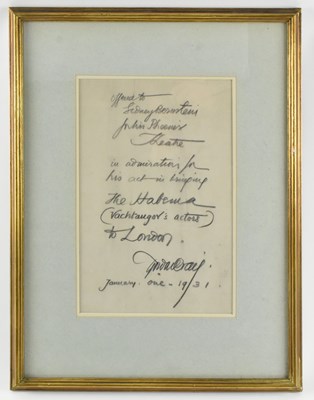 offered to
Sidney Bernstein
Theatre
in admiration for
his act in bringing
The Habima
(Vachtangov's actors)
to London.
January - one - 1931